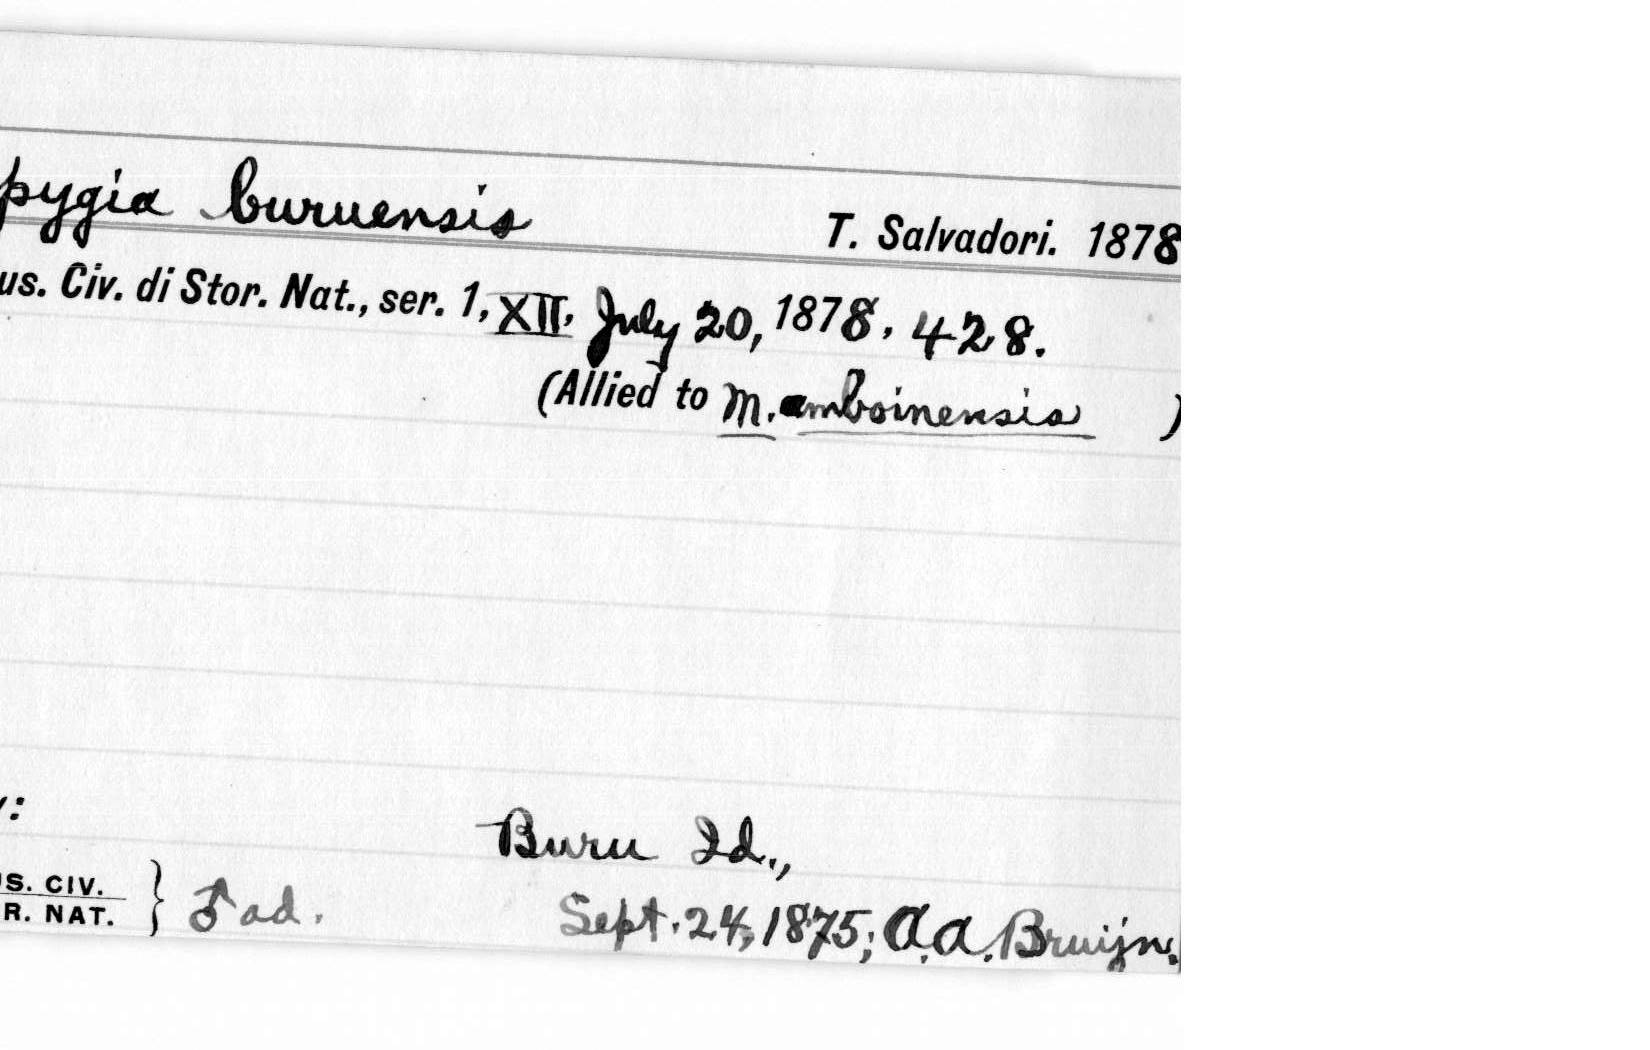 pygia buruensis T. Salvadori. 1878
us. Civ. di Stor. Nat., ser. 1, XII, July 20, 1878, 428.
(Allied to M. amboinensis )
y:
Buru Id.,
S. CIV.
R. NAT. } ♂ ad. Sept. 24, 1875; A. A. Bruijn.